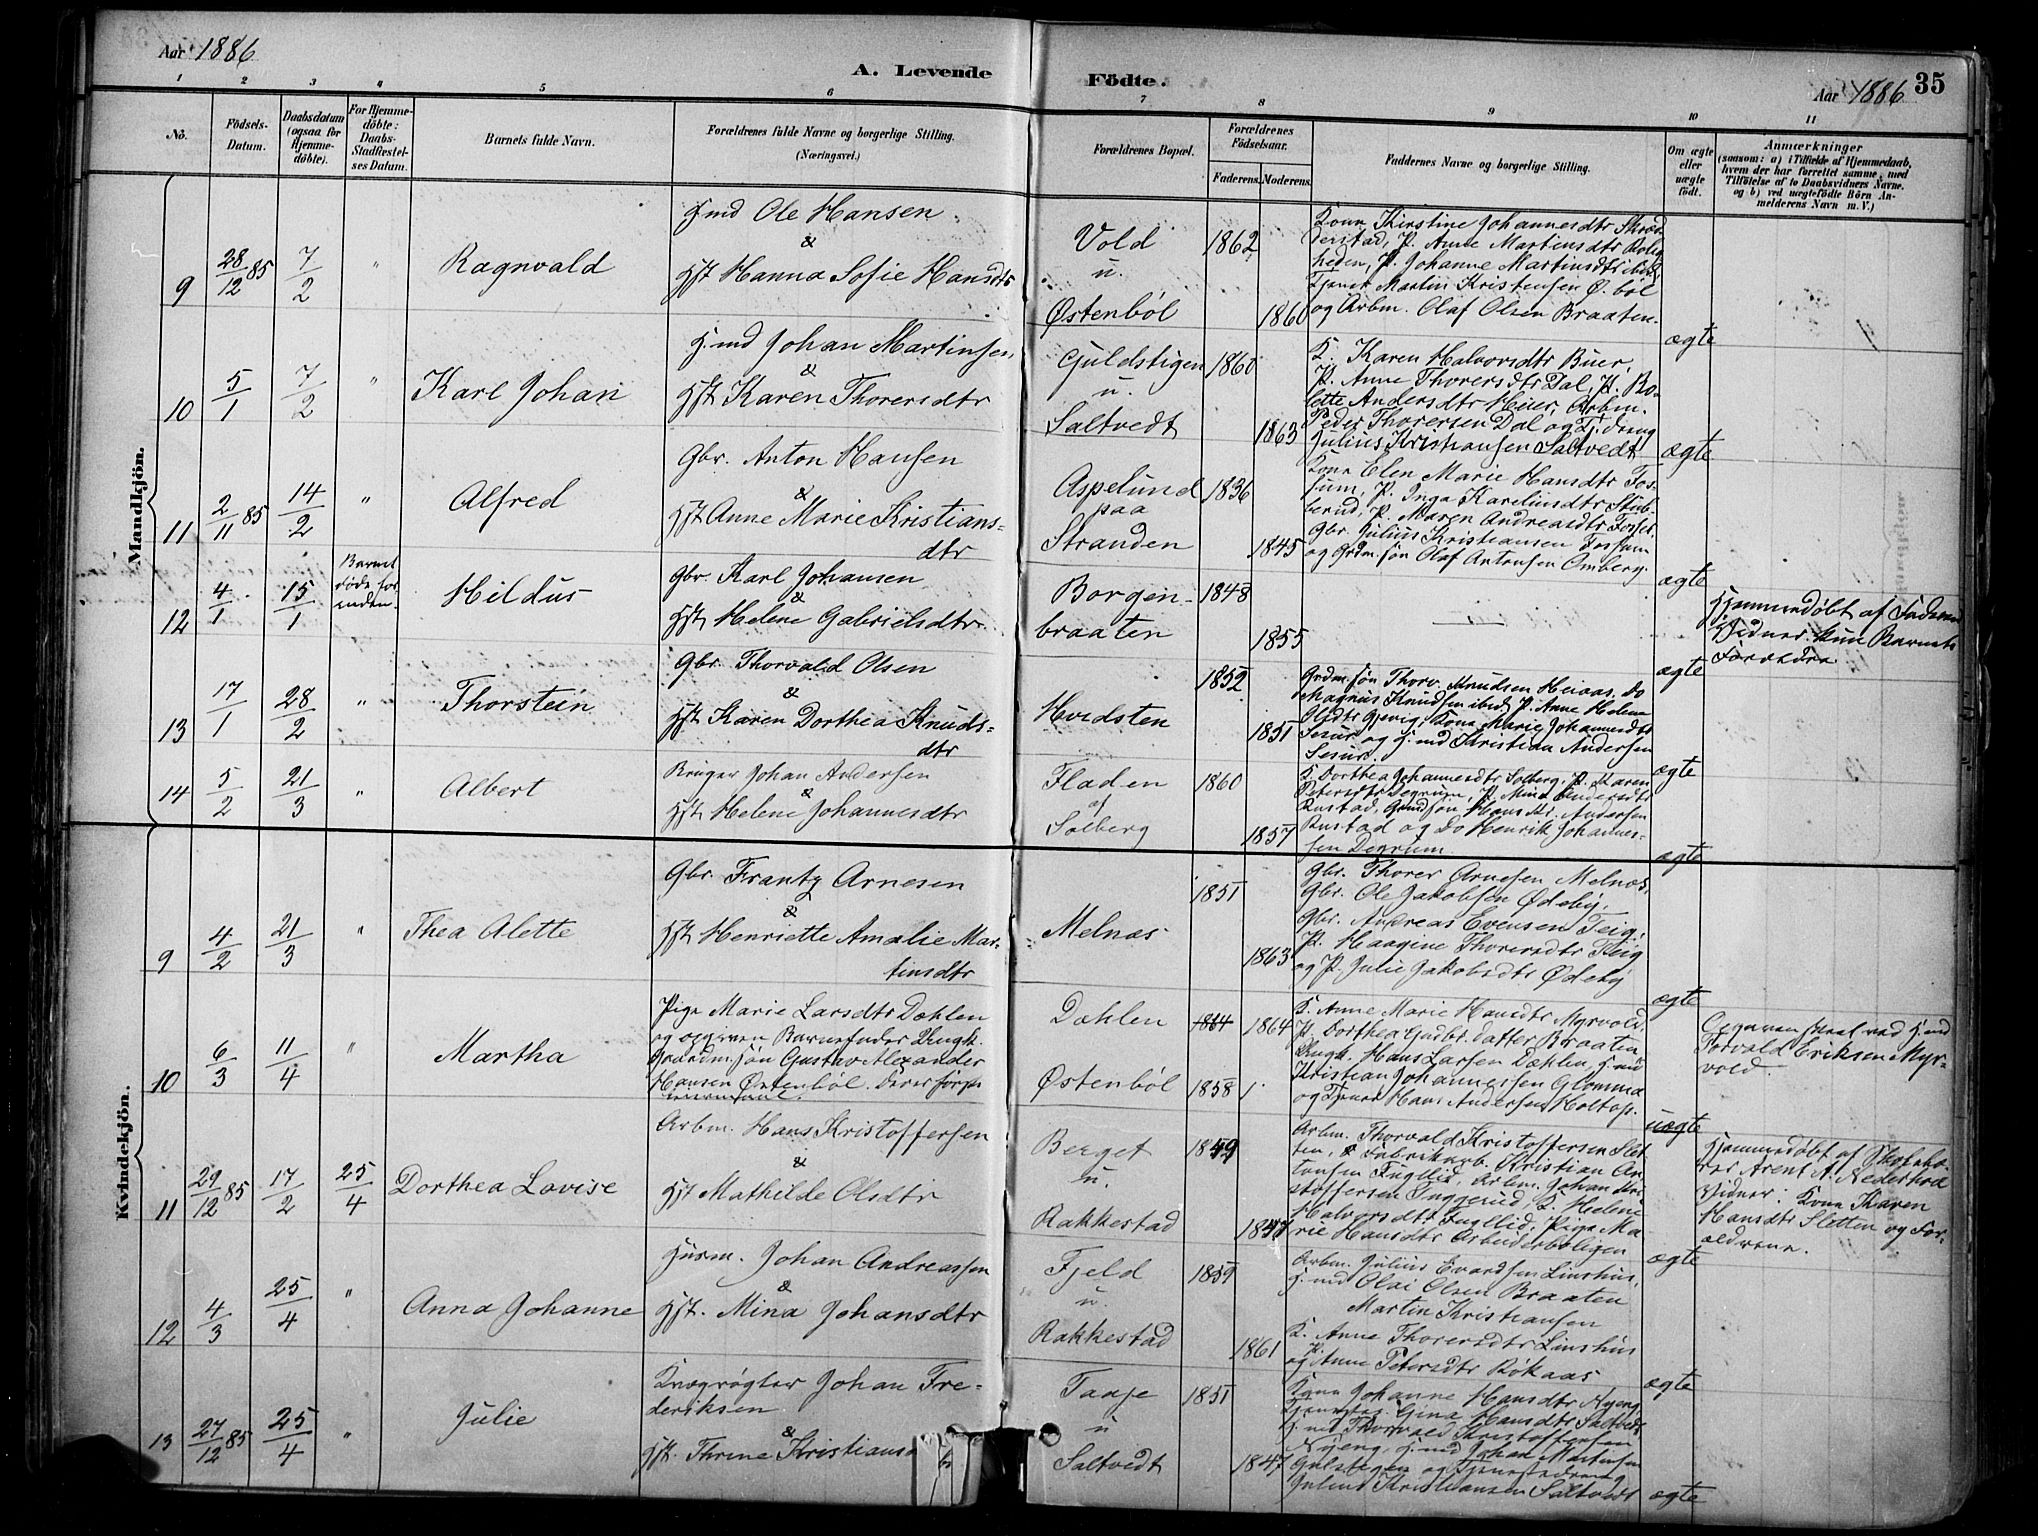 Aar 1886
A. Levende Födte.
Aar 1886 35
1 2 3 4 5 6 7 8 9 10 11
Nö.
Födsels-Datum.
Daabsdatum (ogsaa för Hjemme-döbte).
For Hjemme-döbte: Daabs-Stadfæstelses Datum.
Barnets fulde Navn.
Forældrenes fulde Navne og borgerlige Stilling.
(Næringsvei.)
Forældrenes Bopæl.
Forældrenes Födselsaar.
Faderens. Moderens.
Faddernes Navne og borgerlige Stilling.
Om ægte eller uægte födt.
Anmærkninger
(saasom: a) i Tilfælde af Hjemmedaab,
hvem der har forrettet samme, med
Tilföielse af to Daabsvidners Navne.
og b) ved uægtefödte Börn An-
melderens Navn m. V.)
Mandkjön.
9 28/12 85 7/2 " Ragnvald
Hmd Ole Hansen
&
Hst Hanna Sofie Hansdtr
Vold
u.
Østenböl
1862
1860
Kona Kirstine Johannesdtr
P. Anne Martinsdtr
P. Johanne Martinsdtr ibid
Tjener Martin Kristensen Ø. böl
og Arbm. Olaf Olsen Braaten.
ægte
10 5/1 7/2 " Karl Johan
H.md Johan Martinsen
&
Hst Karen Thorersdtr
Guldstigen
u.
Saltvedt
1860
1863
K. Karen Halvorsdtr Buer,
P. Anne Thorersdtr Dal, P. Bo-
lette Andersdtr Huer, Arbm.
Peder Thorersen Dal og Tj.dreng
Julius Kristiansen Saltvedt
ægte
11 2/11 85 14/2 " Alfred
Gbr. Anton Hansen
&
Hst Anne Marie Kristians-
dtr
Aspelund
paa
Stranden
1836
1845
Kona Elen Marie Hansdtr Fos-
sum, P. Inga Karelinsdtr Stub-
berud, P. Maren Andreasdtr Fosser
Gbr Julius Kristiansen Fossum
og Grdm.søn Olaf Antonsen Omberg.
ægte
12 4/1 15/1 Barnet døde for-inden. Hildus
Gbr. Karl Johansen
&
Hst Helene Gabrielsdtr
Borgen-
braaten
1848
1855
ægte
Hjemmedøbt af Faderen
Vidner kun Barnets
Forældre
13 17/1 28/2 " Thorstein
Gbr. Thorvald Olsen
&
Hst Karen Dorthea Knuds-
dtr
Hvidsten
1852
1851
Grdm.søn Thorv. Knudsen Heiaas, Do
Magnus Knudsen ibid, P. Anne Helene
Olsdtr Gjevig, Kona Marie Johannesdtr
og H.md Kristian Andersen
ægte
14 5/2 21/3 " Albert
Bruger Johan Andersen
Hst Helene Johannesdtr
Fladen
af
Solberg
1860
1857
K Dorthea Johannesdtr Solberg, P. Maren
Petersdtr Degrum, P. Mina Andersdtr
Rustad, Grmdsøn Hans Kr. Andersen
Rustad og Do Henrik Johannes-
sen Degrum
ægte
Kvindekjön.
9 4/2 21/3 " Thea Alette
Gbr. Frantz Arnesen
&
Hst Henriette Amalie Mar-
tinsdtr
Melnæs
1851
1863
Gbr. Thorer Arnesen Melnæs,
Gbr. Ole Jakobsen Ødeby,
Gbr. Andreas Evensen Teig,
P. Haagine Thorersdtr Teig
og P. Julie Jakobsdtr Ødeby
ægte
10 6/3 11/4 " Martha
Pige Marie Larsdtr Dæhlen
og opgiven Barnefader Ungk.
Gaardm. søn Gustav Alexander
Hansen Østenböl.
Dæhlen
Østenböl
1864 1864
1858 1.
K. Anne Marie Hansdtr Myrvold,
P. Dorthea Gudbr.datter Braaten
Ungk. Hans Larsen Dæhlen, H.md
Kristian Johannessen Glomma
og Tjener Hans Andersen Holtop.
uægte
Opgaven skeet ved H.md
Torvald Eriksen Myr-
vold.
11 29/12 85 17/2 25/4 Dorthea Lovise
Arbm. Hans Kristoffersen
&
Hst Mathilde Olsdtr
Berget
u.
Rakkestad
1849
1847
Arbm. Thorvald Kristoffersen Slet-
ten, Fabrikarb. Kristian An-
tonsen Fugllid, Arbm. Johan Kri-
stoffersen Inggerud, K. Helene
Halvorsdtr Fuglli, Pige Ma-
rie Hansdtr Arbeiderboligen
ægte
Hjemmedøbt af
Arent A.
Vidner: Kona Karen
Hansdtr Sletten og For-
ældrene.
12 4/3 25/4 " Anna Johanne
Husm. Johan Andreassen
&
Hst. Mina Johansdtr
Fjeld
u.
Rakkestad
1859
1861
Arbm. Julius Evardsen Linshus,
H. md Olai Olsen Braaten
Martin Kristiansen
K. Anne Thorersdtr Linshus
og P. Anne Petersdtr Rökaas
ægte
13 27/12 85 25/4 " Julie
Kvægrøgter Johan Fre-
deriksen
&
Hst. Thrine Kristians
Taaje
u
Saltvedt
1851
1847
Kona Johanne Hansdtr Nyeng
Gina Hansdtr Saltvedt
H.md Thorvald Kristoffersen
Nyeng, H.md Johan Martinsen
Gulstigen og Tjenestedreng
Julius Kristiansen Saltvedt
ægte